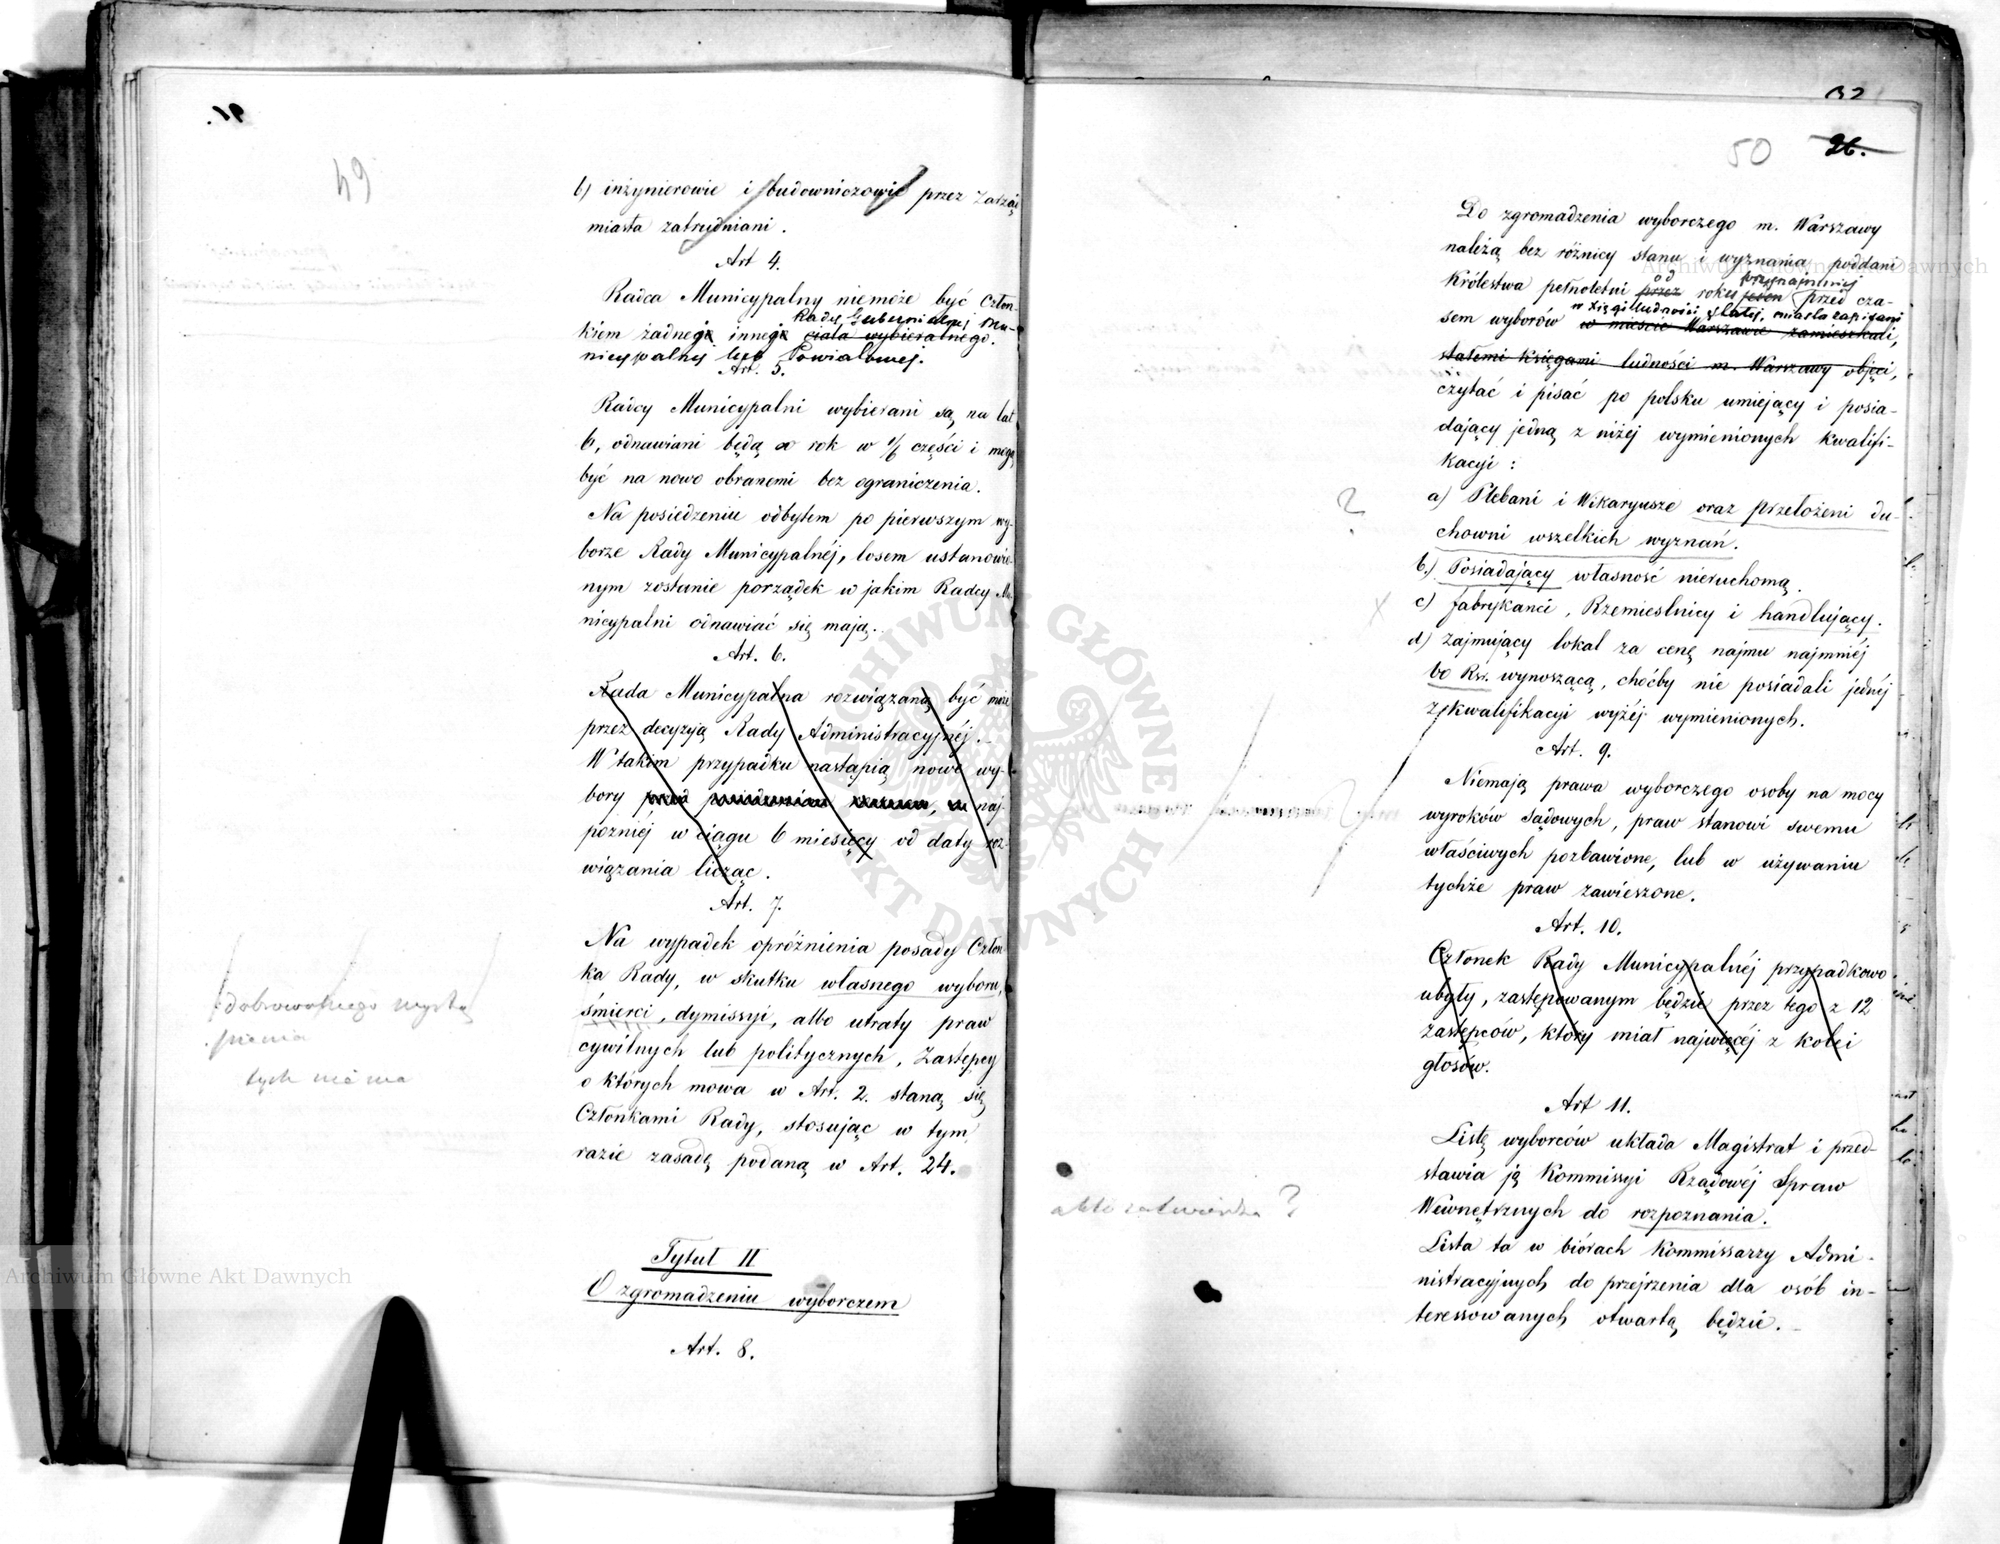 49
b) inżynierowie i budowniczowie przez Zarząd
miasta zatrudniani.
Art 4.
Radca Municypalny niemoże być Człon-
Rady Gubernialnej Mu-
kiem żadnego innego ciała wybieralnego.
nicypalnej lub Powiatowej.
Art. 5.
Radcy Municypalni wybierani są na lat
6, odnawiani będą co rok w 1/6 części i mogą
być na nowo obranemi bez ograniczenia.
Na posiedzeniu odbytem po pierwszym wy-
borze Rady Municypalnéj, losem ustanowio-
nym zostanie porządek w jakim Radcy Mu-
nicypalni odnawiać się mają.
Art. 6.
Rada Municypalna rozwiązaną być może
przez decyzyą Rady Administracyjnéj.
W takim przypadku nastąpią nowe wy-
bory przed naj-
pozniéj w ciągu 6 miesięcy od daty roz-
wiązania licząc.
Art. 7.
Na wypadek opróżnienia posady Człon-
ka Rady, w skutku własnego wyboru,
śmierci, dymissyi, albo utraty praw
cywilnych lub politycznych, Zastępcy
o których mowa w Art. 2. staną się
Członkami Rady, stosując w tym
razie zasadę podaną w Art. 24.
dobrowolnego wystą
pienia
tych niema
Tytuł II
O zgromadzeniu wyborczem
Art. 8.
50 26.
Do zgromadzenia wyborczego m. Warszawy
należą bez różnicy stanu i wyznania poddani
od przynajmniej
Królestwa pełnoletni przez roku jeden przed cza-
w księgi ludności stałej, miasta zapisani
sem wyborów w mieście Warszawie zamieszkali,
stałemi księgami ludności m. Warszawy objęci,
czytać i pisać po polsku umiejący i posia-
dający jedną z niżéj wymienionych kwalifi-
kacyi:
a) Plebani i Wikaryusze oraz przełożeni du-
chowni wszelkich wyznań.
b.) Posiadający własność nieruchomą.
c) fabrykanci, Rzemieslnicy i handlujący.
d) zajmujący lokal za cenę najmu najmniéj
60 Rsr. wynoszącą, choćby nie posiadali jednéj
z kwalifikacyi wyżéj wymienionych.
Art. 9.
Niemają prawa wyborczego osoby na mocy
wyroków sądowych, praw stanowi swemu
właściwych pozbawione, lub w używaniu
tychże praw zawieszone.
Art. 10.
Członek Rady Municypalnéj przypadkowo
ubyły, zastępowanym będzie przez tego z 12
zastępców, który miał najwięcéj z kolei
głosów.
Art 11.
Listę wyborców układa Magistrat i przed-
stawia ją Kommissyi Rządowéj Spraw
Wewnętrznych do rozpoznania.
Lista ta w biórach Kommissarzy Admi-
nistracyjnych do przejrzenia dla osób in-
teressowanych otwartą będzie.
?
a kto zatwierdza?
Archiwum Główne Akt Dawnych
Archiwum Główne Akt Dawnych
ARCHIWUM GŁÓWNE AKT DAWNYCH